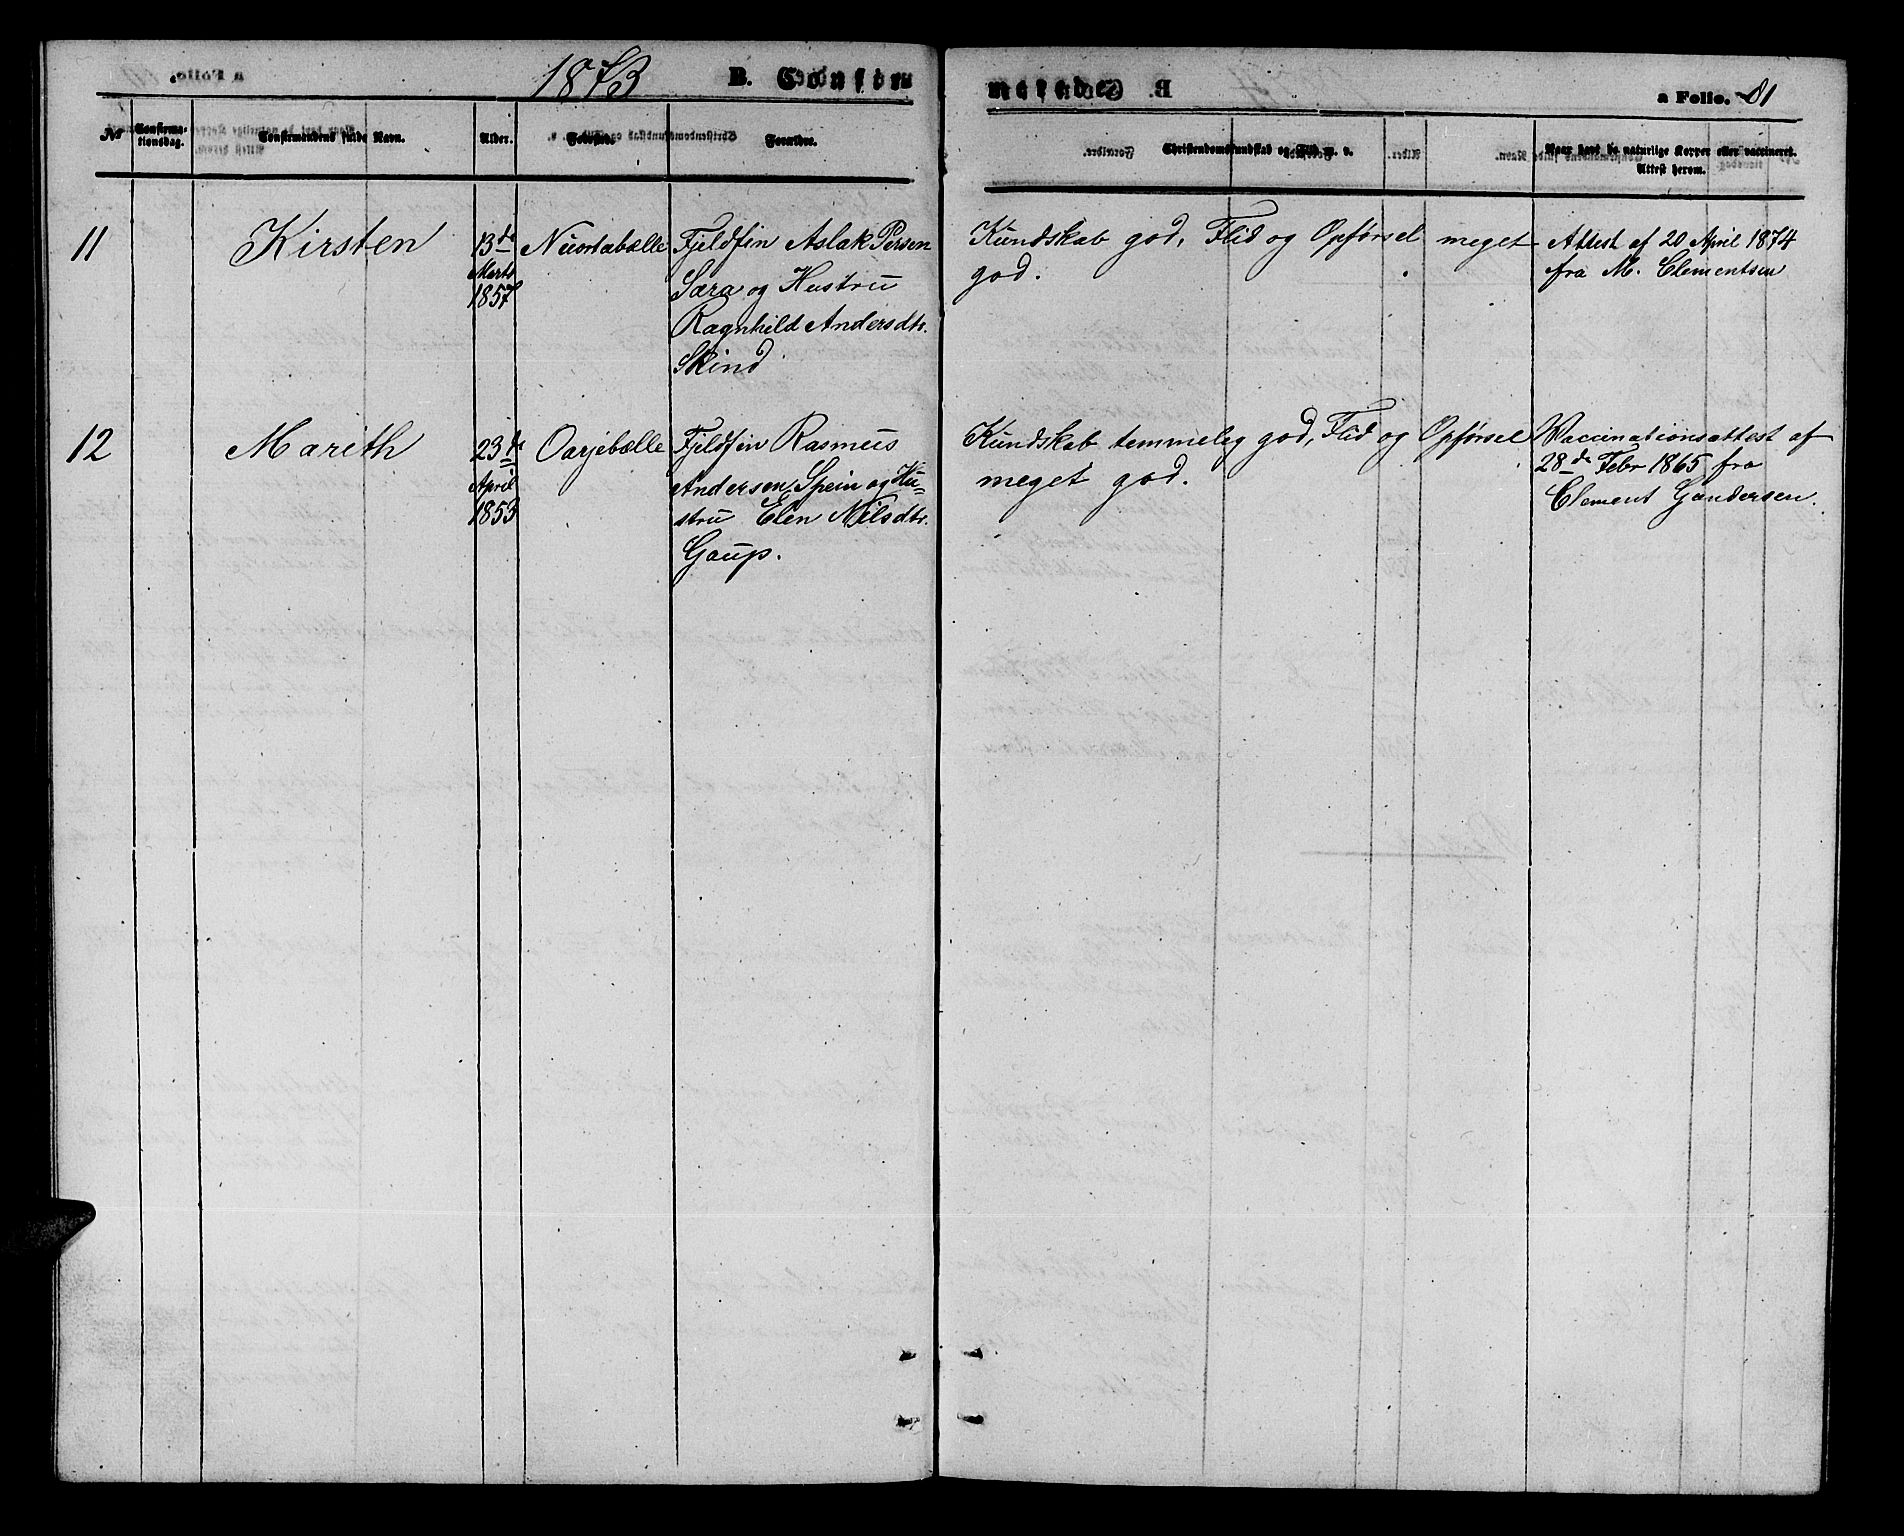 1873 B. Confir
a Folio. 81
No Confirma-tionsdag. Confirmandens fulde Navn. Alder. Fødested. Forældre. Christendomskundskab og Flid m. v. Naar havt de naturlige Kopper eller vaccineret. Attest herom.
11 Kirsten 13de Niuortabælle Fjeldfin Aslak Persen Kundskab god, Flid og Opførsel meget Attest af 20 April 1874
Marts Sara og Hustru god. fra M. Clementsen
1857 Ragnhild Andersdtr.
Skind
12 Marith 23de Oarjebælle Fjeldfin Rasmus Kundskab temmelig god, Flid og Opførsel Vaccinationsattest af
April Andersen Spein og Hu= meget god. 28de Febr 1865 fra
1853 stru Elen Nilsdtr. Clement Gundersen.
Gaup.